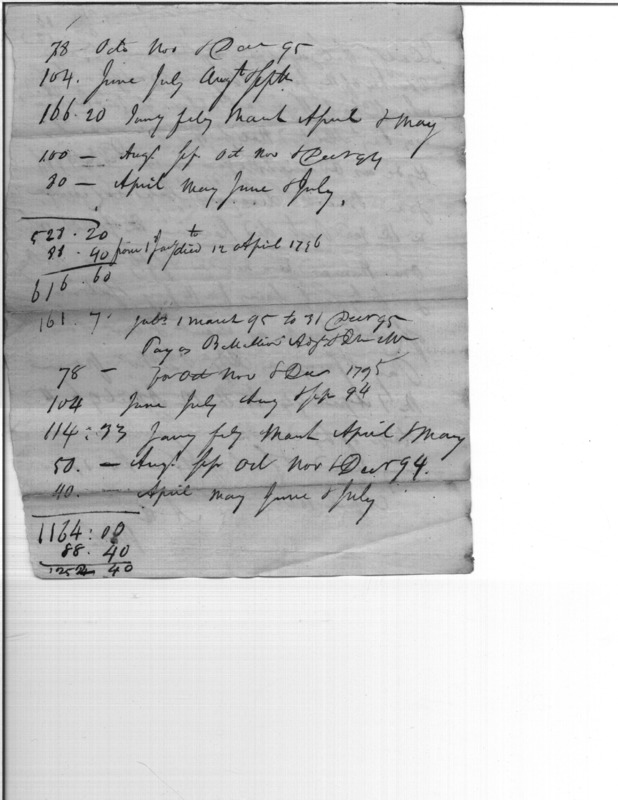 78 - Octo Nov & Decr 95
104. June July Augt & Sept
166.20 Jany Feby March April & May
100 — Augt Sep Oct Nov & Decr 94
80 — April May June & July.
528.20
88.40 from 1st to 12 April 1796
616.60
161.7 1 March 95 to 31 Decr 95
Pay as
78 — for Oct Nov & Decr 1795
104 June July Aug & Sep 94
114:33 Jany Feby March April & May
50. — Augt Sep Oct Nov & Decr 94.
40. — April May June & July
1164:00
88.40
1252 40